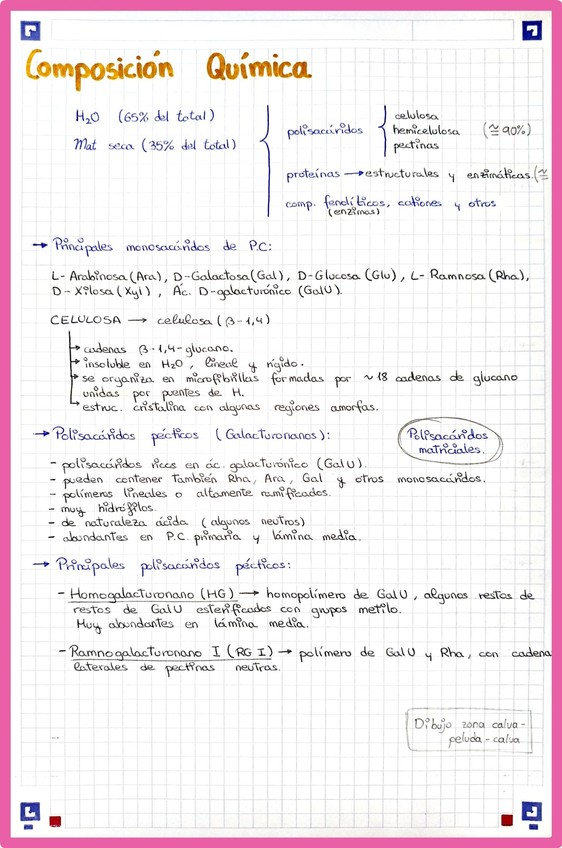 Composición Química
H₂O (65% del total)
Mat seca (35% del total)
polisacáridos
celulosa
hemicelulosa
pectinas
(≅ 90%)
proteínas → estructurales y enzimáticas. (≅
comp. fenólíticos, cationes y otros
(enzimas)
→ Principales monosacáridos de P.C:
L-Arabinosa (Ara), D-Galactosa (Gal), D-Glucosa (Glu), L-Ramnosa (Rha),
D-Xilosa (Xyl), Ác. D-galacturónico (GalU).
CELULOSA → celulosa (β-1,4)
→ cadenas β-1,4-glucano.
→ insoluble en H₂O, lineal y rígido.
→ se organiza en microfibrillas formadas por ~18 cadenas de glucano
unidas por puentes de H.
→ estruc. cristalina con algunas regiones amorfas.
→ Polisacáridos pécticos (Galacturonanos):
Polisacáridos
matriciales.
- polisacáridos ricos en ác. galacturónico (GalU).
- pueden contener también Rha, Ara, Gal y otros monosacáridos.
- polímeros lineales o altamente ramificados.
- muy hidrófilos.
- de naturaleza ácida (algunos neutros)
- abundantes en P.C. primaria y lámina media.
→ Principales polisacáridos pécticos:
- Homogalacturonano (HG) → homopolímero de GalU, algunos restos de
restos de GalU esterificados con grupos metilo.
Muy abundantes en lámina media.
- Ramnogalacturonano I (RG I) → polímero de GalU y Rha, con cadena
laterales de pectinas neutras.
Dibujo zona calva-
peluda-calva